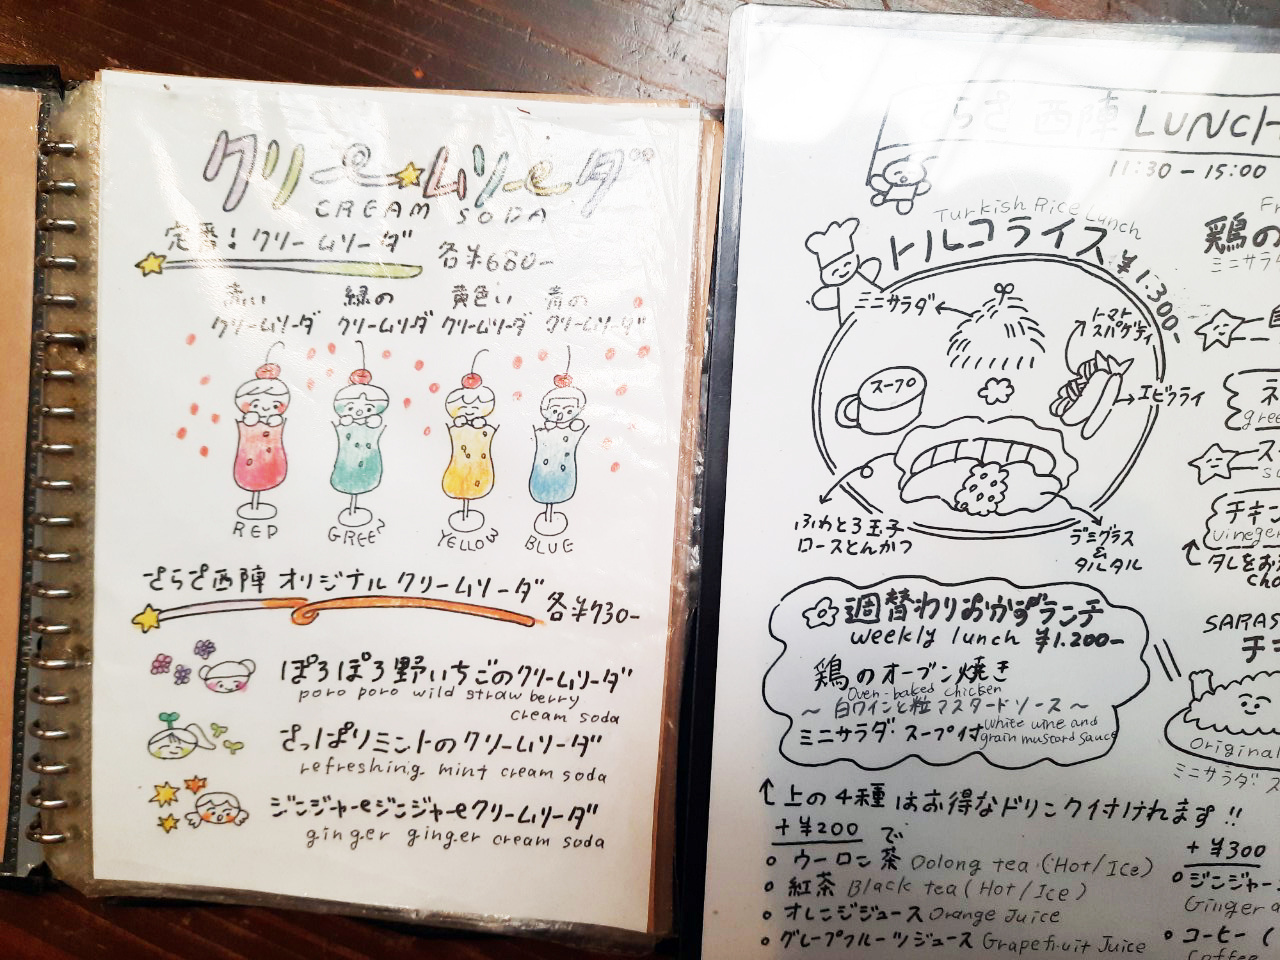 クリーム★ソーダ
CREAM SODA
定番！クリームソーダ 各¥680-
赤い クリームソーダ
緑の クリームソーダ
黄色い クリームソーダ
青の クリームソーダ
RED
GREE²
YELLOW
BLUE
さらさ西陣 オリジナル クリームソーダ 各¥730-
ぽろぽろ野いちごのクリームソーダ
poro poro wild straw berry
cream soda
さっぱりミントのクリームソーダ
refreshing mint cream soda
ジンジャーeジンジャーeクリームソーダ
ginger ginger cream soda
さらさ西陣 LUNCH
11:30-15:00
Turkish Rice Lunch
トルコライス ¥1.300-
ミニサラダ
トマト
スパゲティ
スープ
エビフライ
ふわとろ玉子
ロースとんかつ
デミグラス
&
タルタル
週替わりおかずランチ
weekly lunch ¥1.200-
鶏のオーブン焼き
Oven-baked chicken
〜白ワインと粒マスタードソース〜
white wine and
grain mustard sauce
ミニサラダ・スープ付
↑上の4種はお得なドリンク付けれます!!
+¥200 で
ウーロン茶 Oolong tea (Hot/Ice)
紅茶 Black tea (Hot/Ice)
オレンジジュース Orange Juice
グレープフルーツジュース Grapefruit Juice
鶏の
ミニサラダ
チキン
vineger
タレをお
SARAS
Original
+¥300
ジンジャー
Ginger a
コーヒー (
Coffee